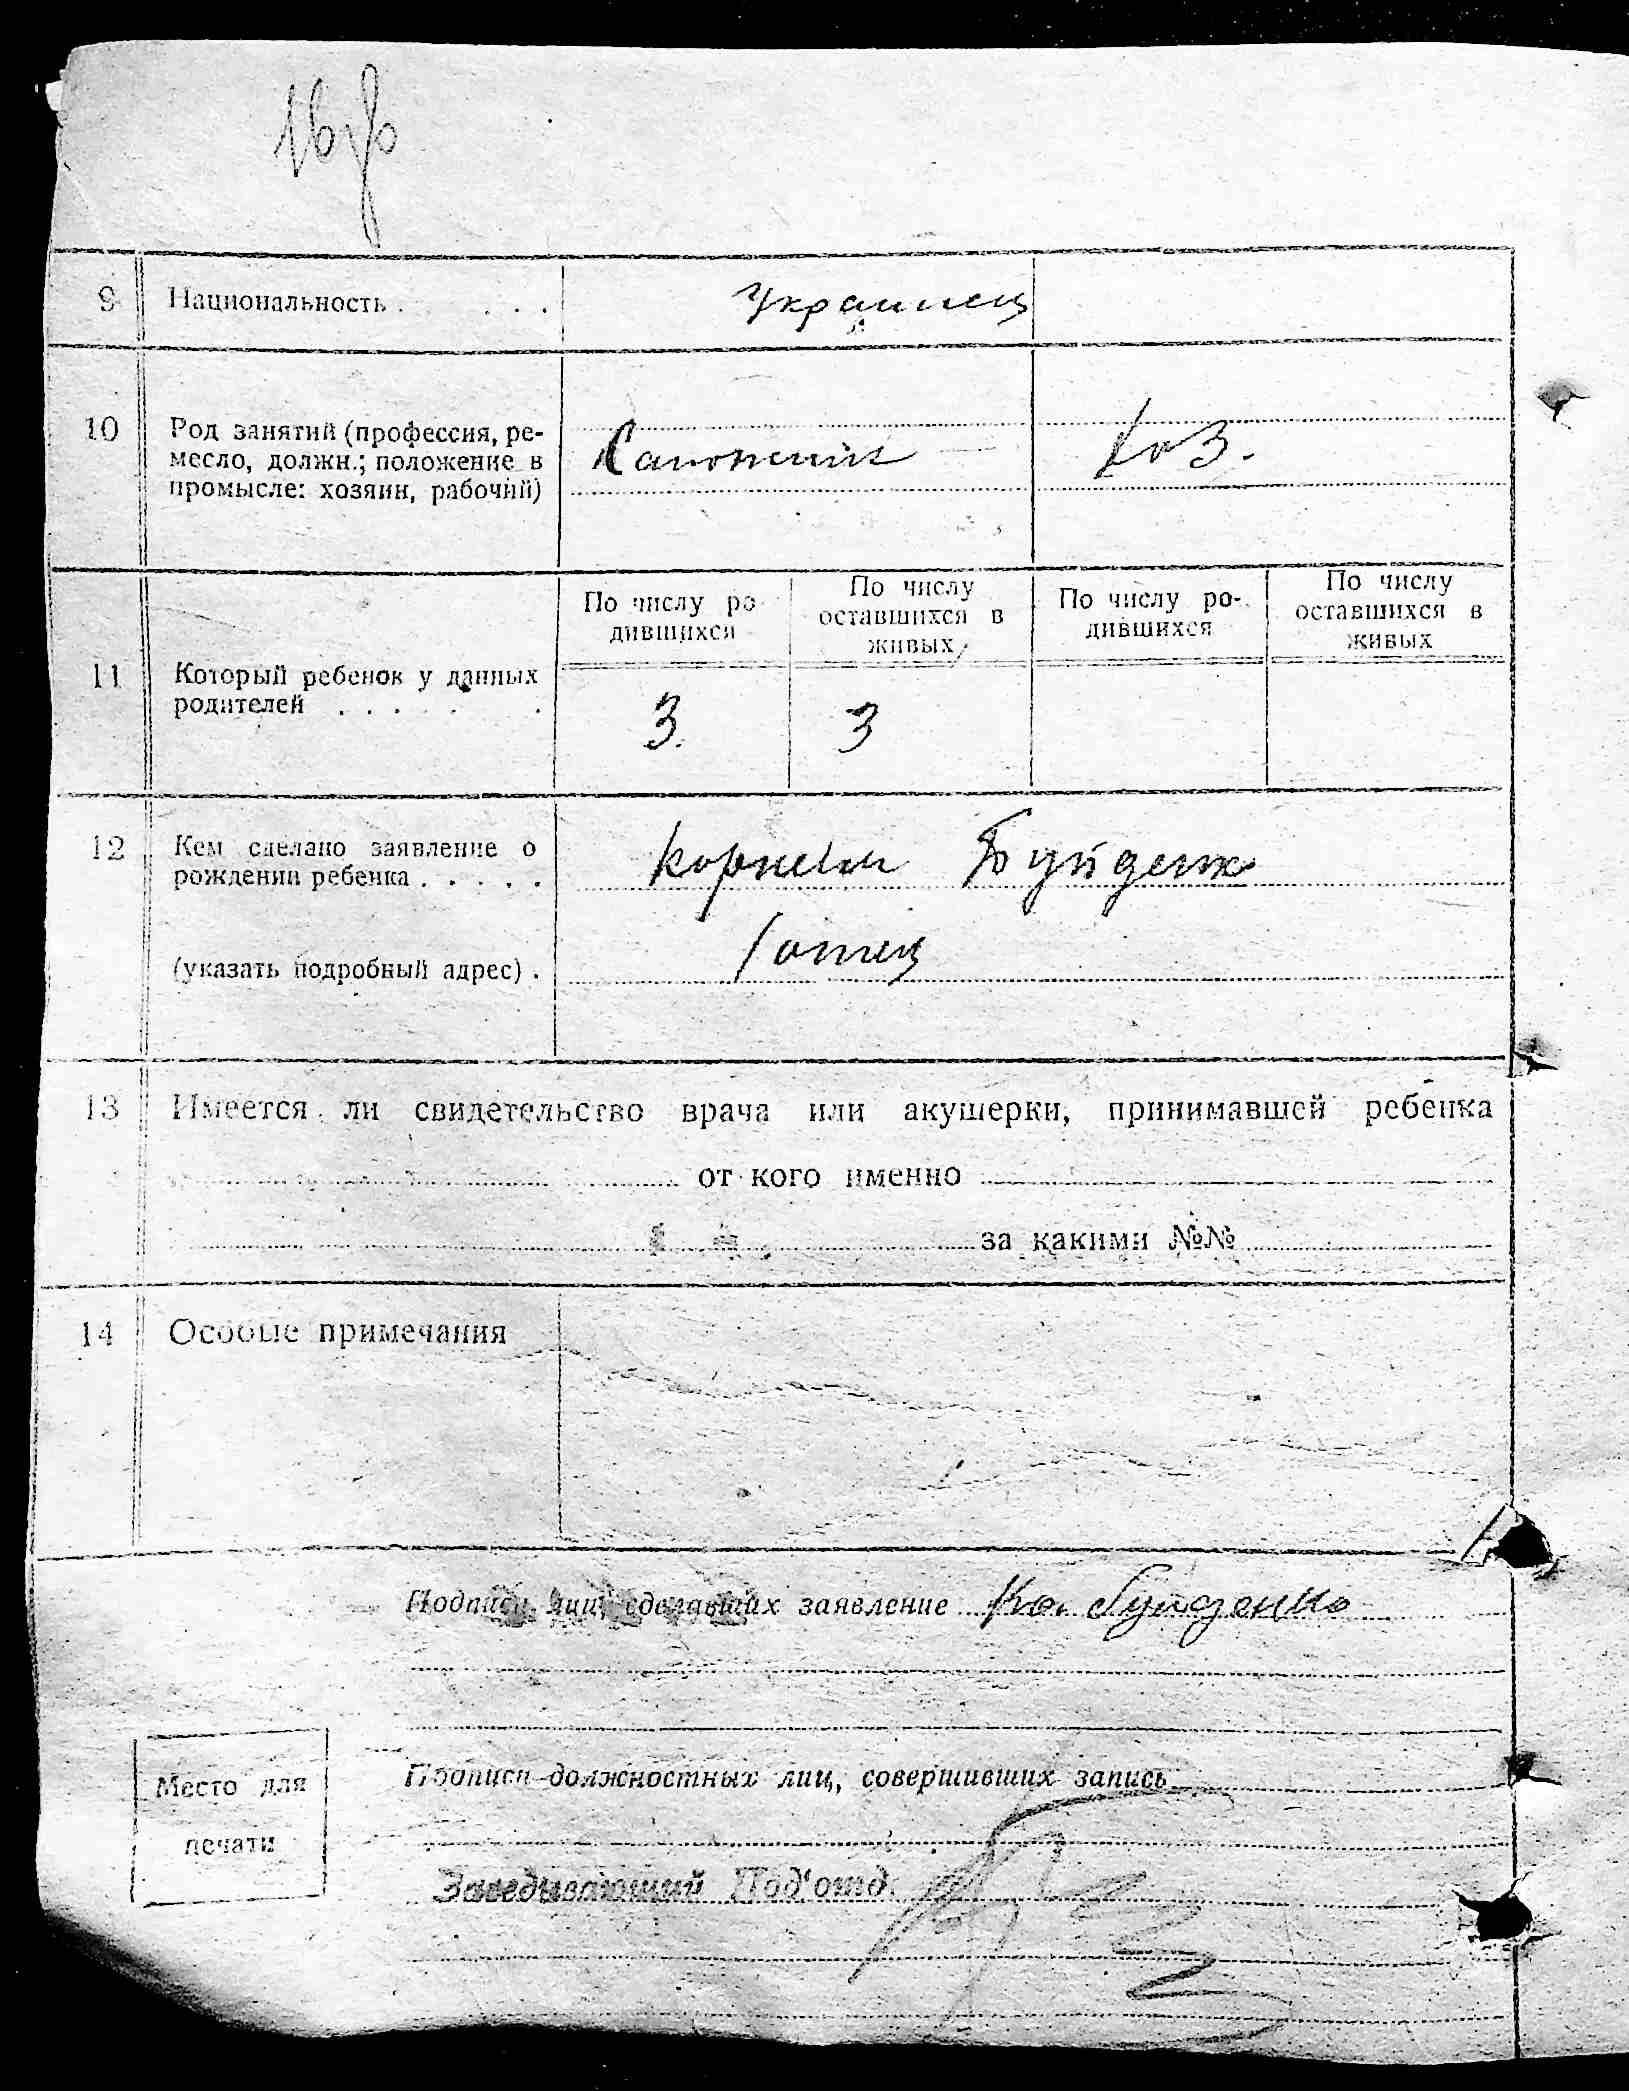 16 об
9 Национальность . . . . Украинец
10 Род занятий (профессия, ре-
месло, должн.; положение в
промысле: хозяин, рабочий)
Сапожник
Хоз.
По числу ро-
дившихся
По числу
оставшихся в
живых
По числу ро-
дившихся
По числу
оставшихся в
живых
11 Который ребенок у данных
родителей . . . . . .
3. 3
12 Кем сделано заявление о
рождении ребенка . . . . .
Корней
(указать подробный адрес) .
отец
13 Имеется ли свидетельство врача или акушерки, принимавшей ребенка
от кого именно
за какими №№
14 Особые примечания
Подписи лиц, сделавших заявление
Подписи должностных лиц, совершивших запись
Место для
печати
Заведывающий Под'отд.